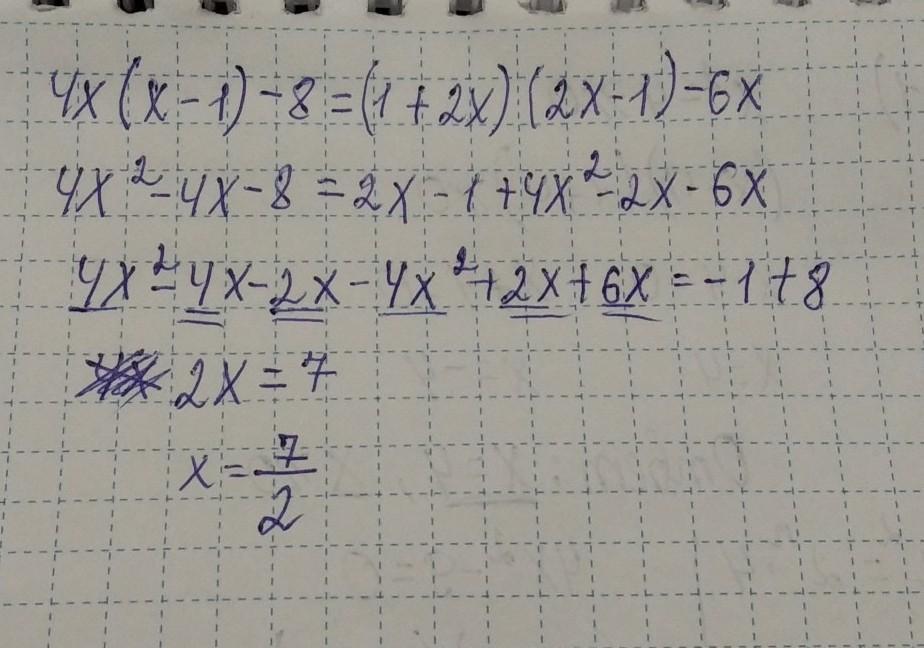 4x(x-1)-8=(1+2x)(2x-1)-6x
4x²-4x-8=2x-1+4x²-2x-6x
4x²-4x-2x-4x²+2x+6x=-1+8
2x=7
x=7/2